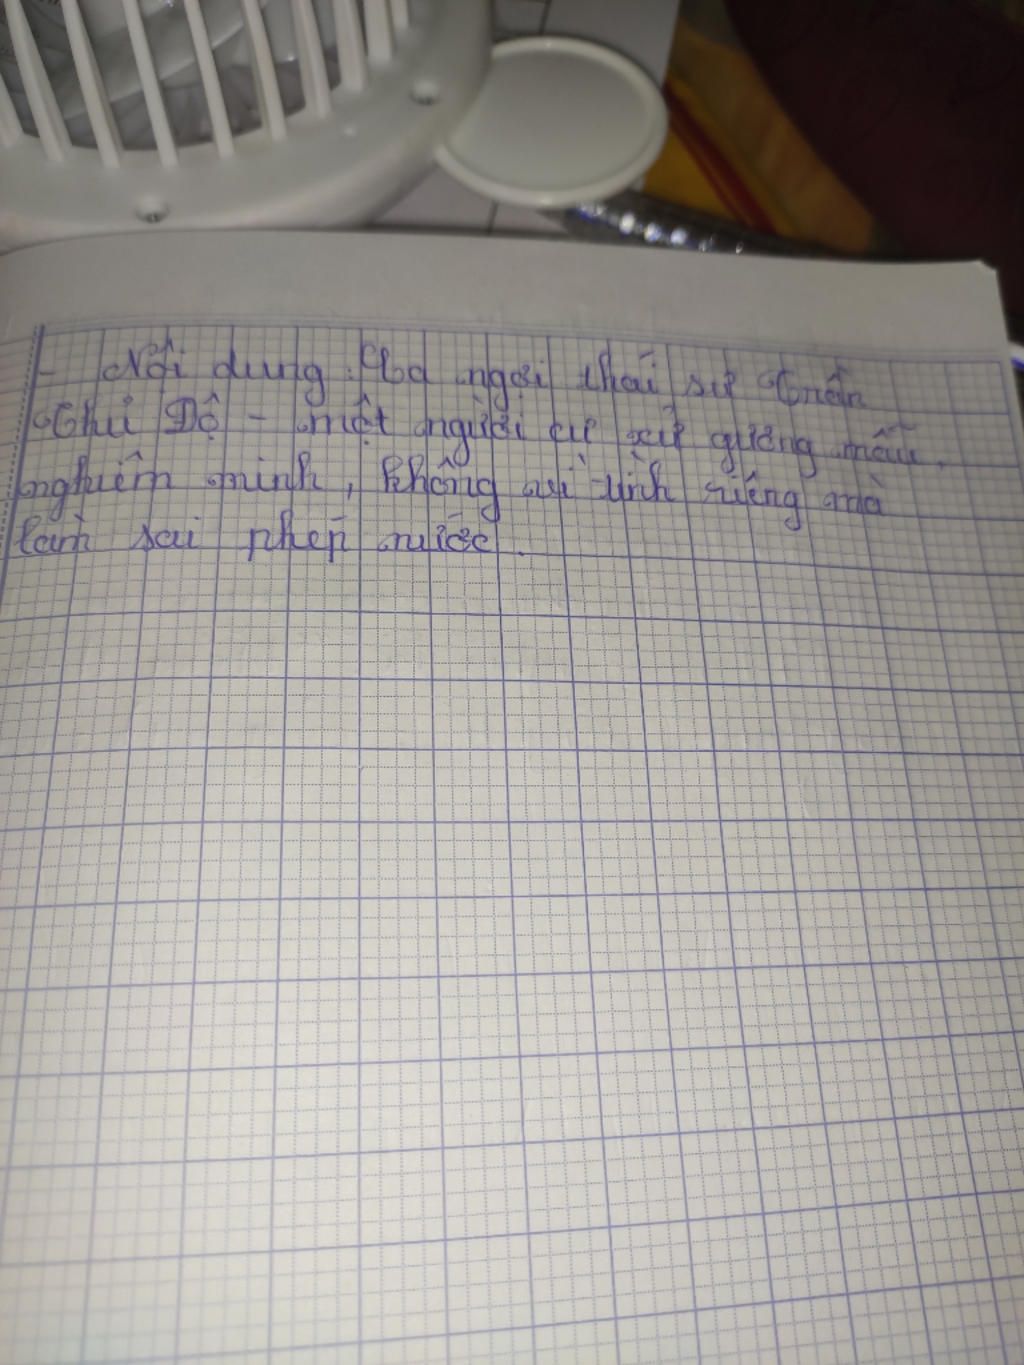 - Nội dung: Ca ngợi thái sư Trần
Thủ Độ - một người cư xử gương mẫu,
nghiêm minh, không vì tình riêng mà
làm sai phép nước.